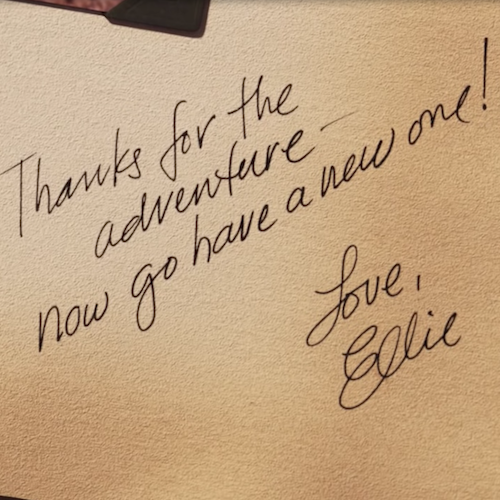 Thanks for the
adventure—
now go have a new one!
Love,
Ellie